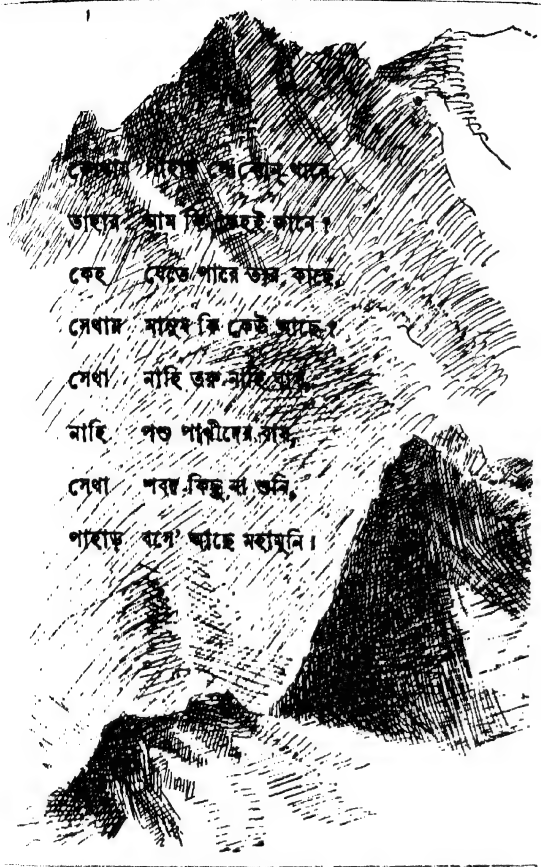 কোথায় পাহাড় সে কোন্ খানে,
তাহার নাম কি কেহই জানে?
কেহ যেতে পারে তার কাছে,
সেথায় মানুষ কি কেউ আছে?
সেথা নাহি তরু নাহি ঘাস,
নাহি পশু পাখীদের বাস,
সেথা শবদ কিছু না শুনি,
পাহাড় বসে' আছে মহামুনি।